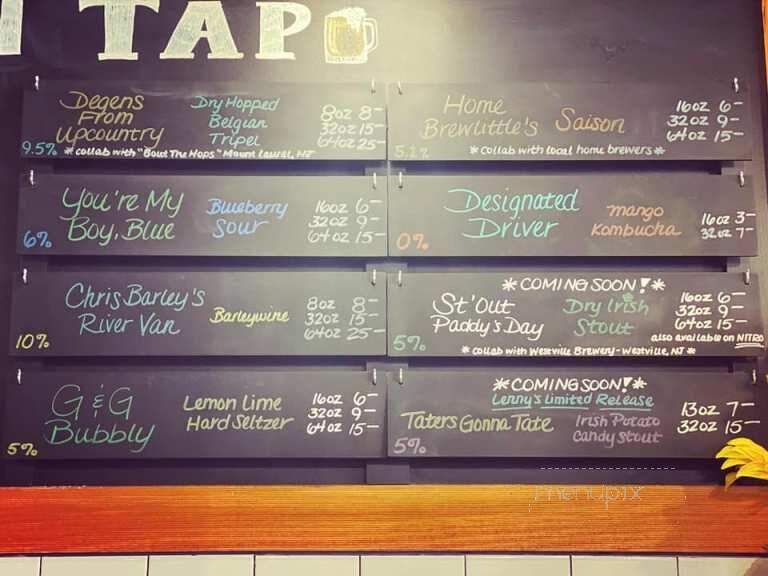 TAP
Degens
From
Upcountry
Dry Hopped
Belgian
Tripel
8oz 8-
32oz 15-
64oz 25-
9.5%
*collab with "Bout The Hops" Mount Laurel, NJ
You're My
Boy, Blue
Blueberry
Sour
16oz 6-
32oz 9-
64oz 15-
6%
Chris Barley's
River Van
Barleywine
8oz 8-
32oz 15-
64oz 25-
10%
G & G
Bubbly
Lemon Lime
Hard Seltzer
16oz 6-
32oz 9-
64oz 15-
5%
Home
Brewlittle's
Saison
16oz 6-
32oz 9-
64oz 15-
5.1%
*collab with local home brewers*
Designated
Driver
mango
Kombucha
16oz 3-
32oz 7-
0%
*COMING SOON!*
St' Out
Paddy's Day
Dry Irish
Stout
16oz 6-
32oz 9-
64oz 15-
also available on NITRO
5%
*collab with Westville Brewery-Westville, NJ*
*COMING SOON!*
Lenny's Limited Release
Taters Gonna Tate
Irish Potato
Candy Stout
13oz 7-
32oz 15-
5%
menupix